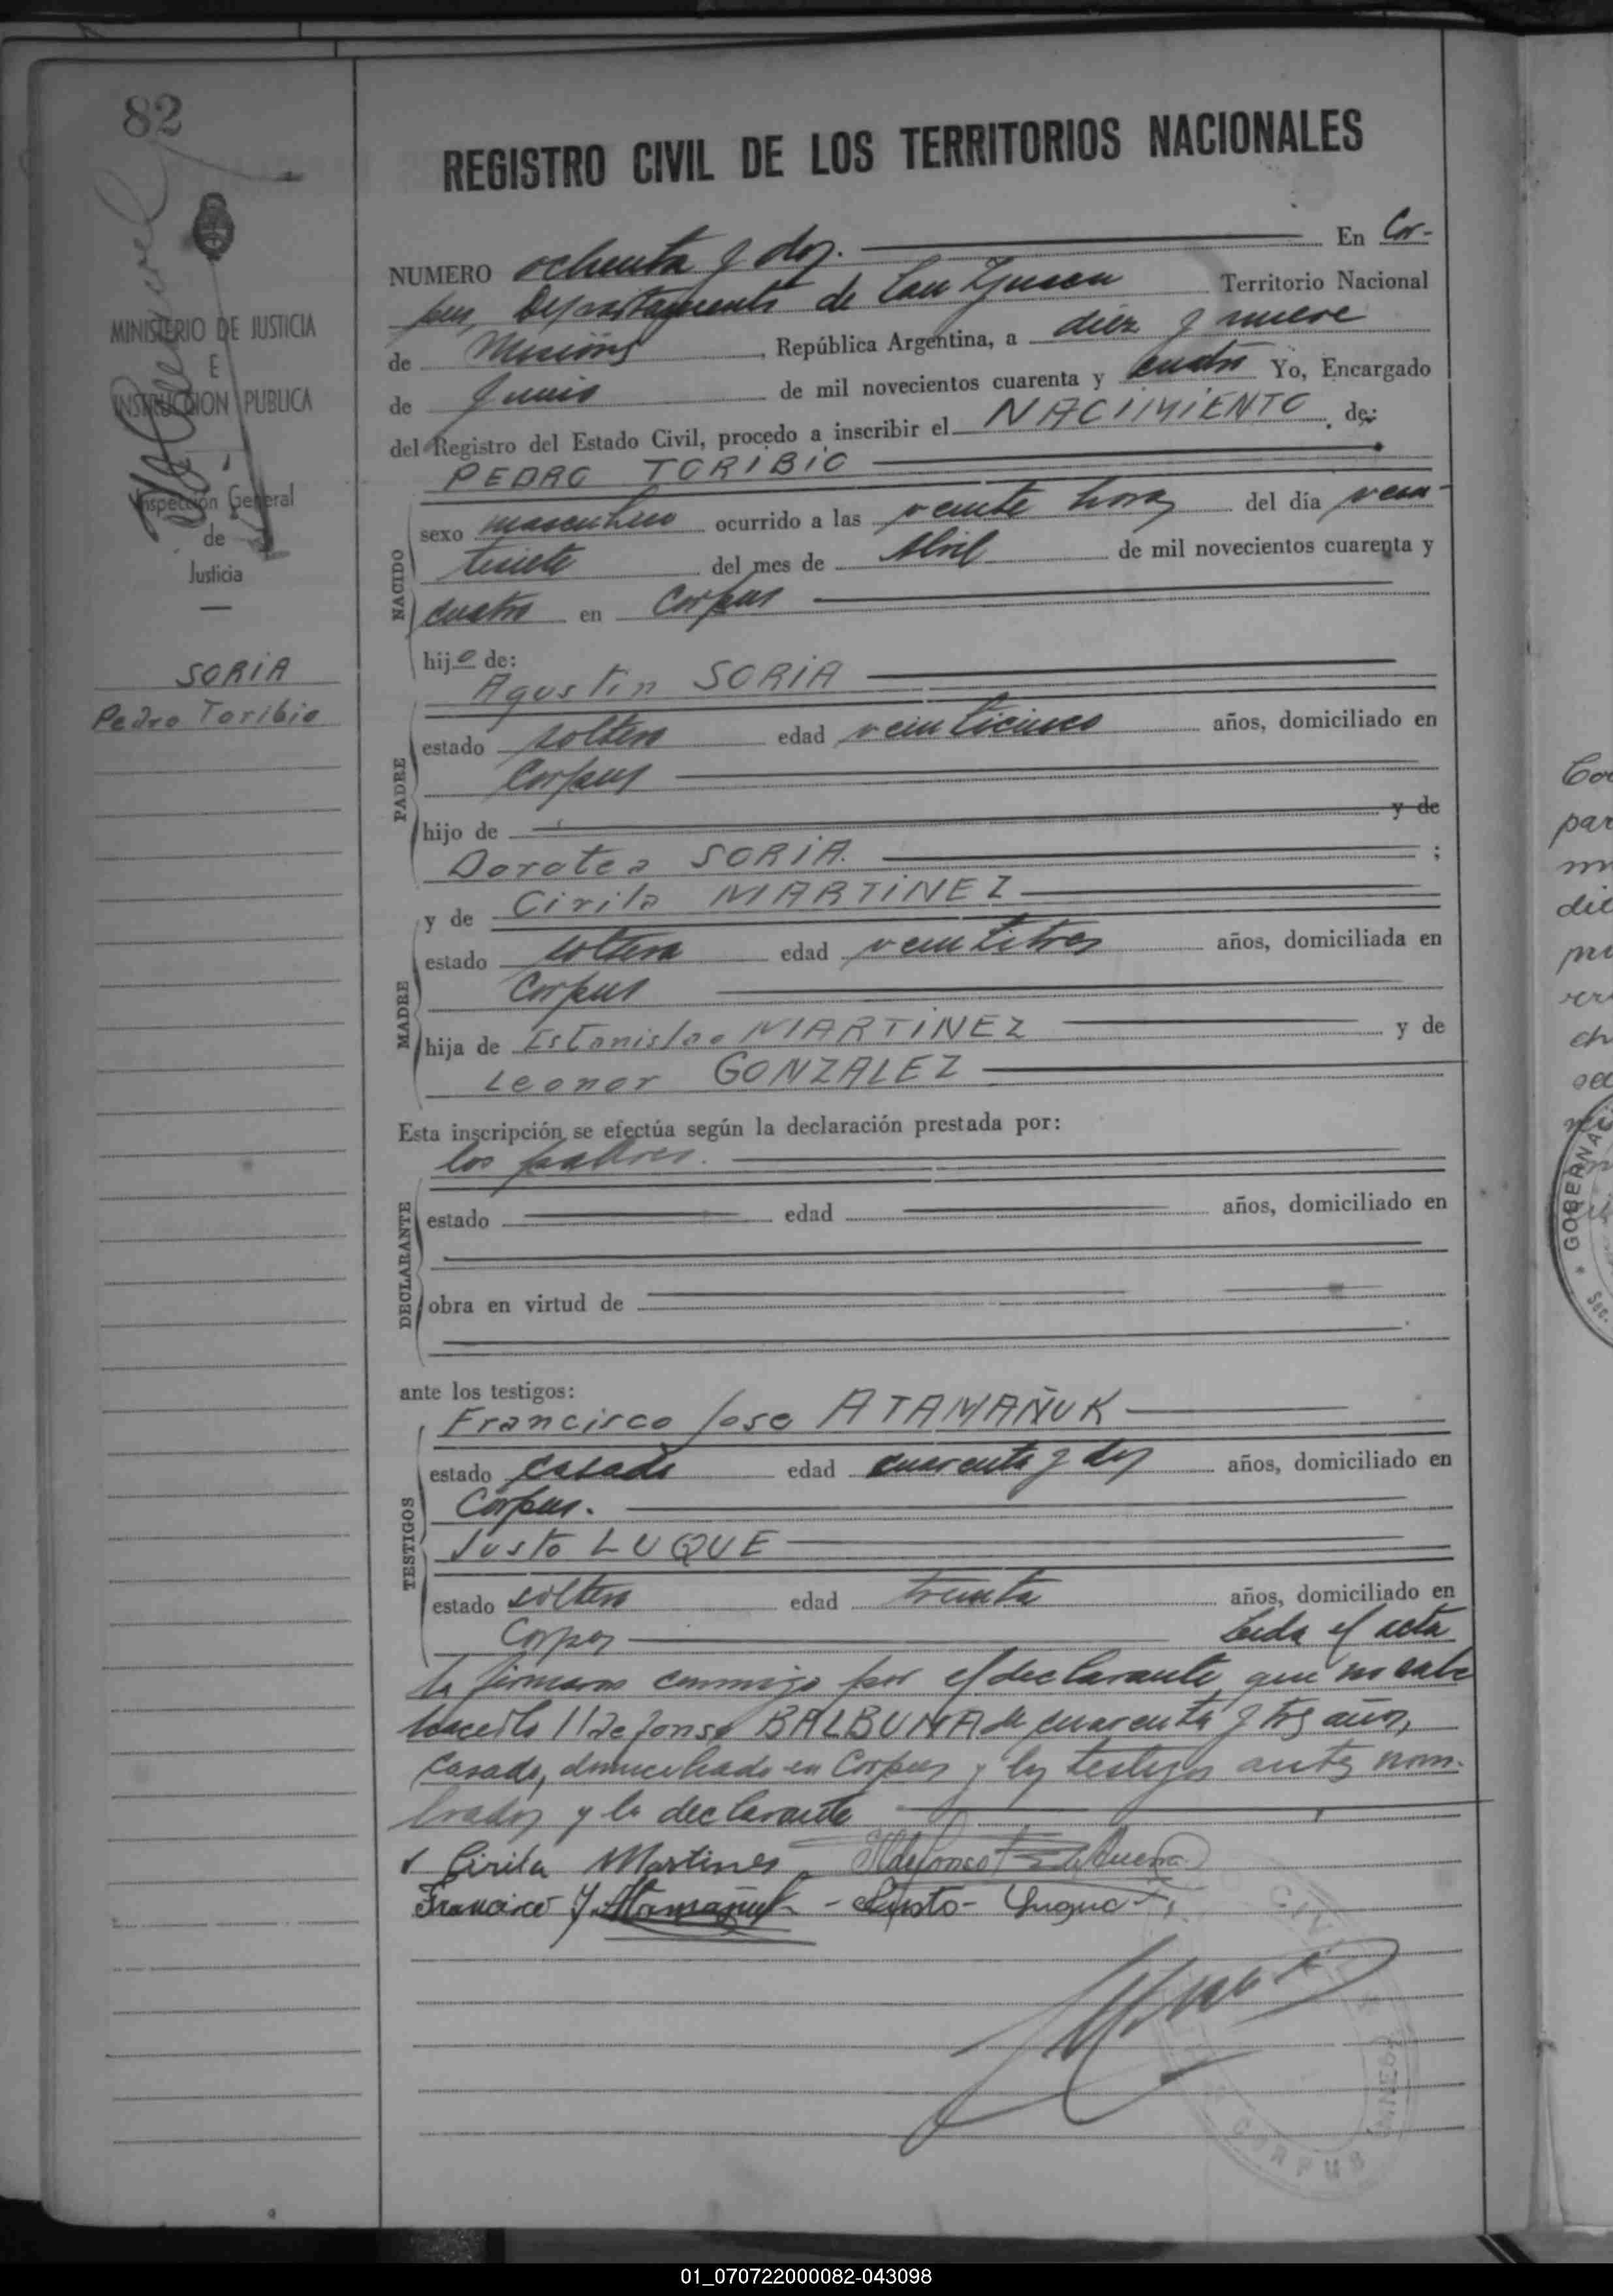 82
MINISTERIO DE JUSTICIA
E
INSTRUCCION PUBLICA
Inspección General
de
Justicia
SORIA
Pedro Toribio
REGISTRO CIVIL DE LOS TERRITORIOS NACIONALES
NUMERO ochenta y dos. En Cor-
pus, Departamento de San Ignacio Territorio Nacional
de Misiones, República Argentina, a diez y nueve
de Junio de mil novecientos cuarenta y cuatro Yo, Encargado
del Registro del Estado Civil, procedo a inscribir el NACIMIENTO de:
PEDRO TORIBIO
NACIDO
sexo masculino ocurrido a las veinte horas del día vein-
tisiete del mes de Abril de mil novecientos cuarenta y
cuatro en Corpus
hijo de:
Agustin SORIA
PADRE
estado soltero edad veinticinco años, domiciliado en
Corpus
hijo de y de
Dorotea SORIA. ;
y de Cirila MARTINEZ
MADRE
estado soltera edad veintitres años, domiciliada en
Corpus
hija de Estanislao MARTINEZ y de
Leonor GONZALEZ
Esta inscripción se efectúa según la declaración prestada por:
los padres.
DECLARANTE
estado edad años, domiciliado en
obra en virtud de
ante los testigos:
Francisco Jose ATAMAÑUK
TESTIGOS
estado casado edad cuarenta y dos años, domiciliado en
Corpus.
Justo LUQUE
estado soltero edad treinta años, domiciliado en
Corpus Leida el acta
la firmaron conmigo por el declarante que no sabe
hacerlo Ildefonso BALBUENA de cuarenta y tres años,
casado, domiciliado en Corpus y los testigos antes nom-
brados y la declarante
Cirila Martines Ildefonso
Francisco J. Atamañuk - Justo - Luque
CORPUS
GOBERNA
Sec.
01_070722000082-043098